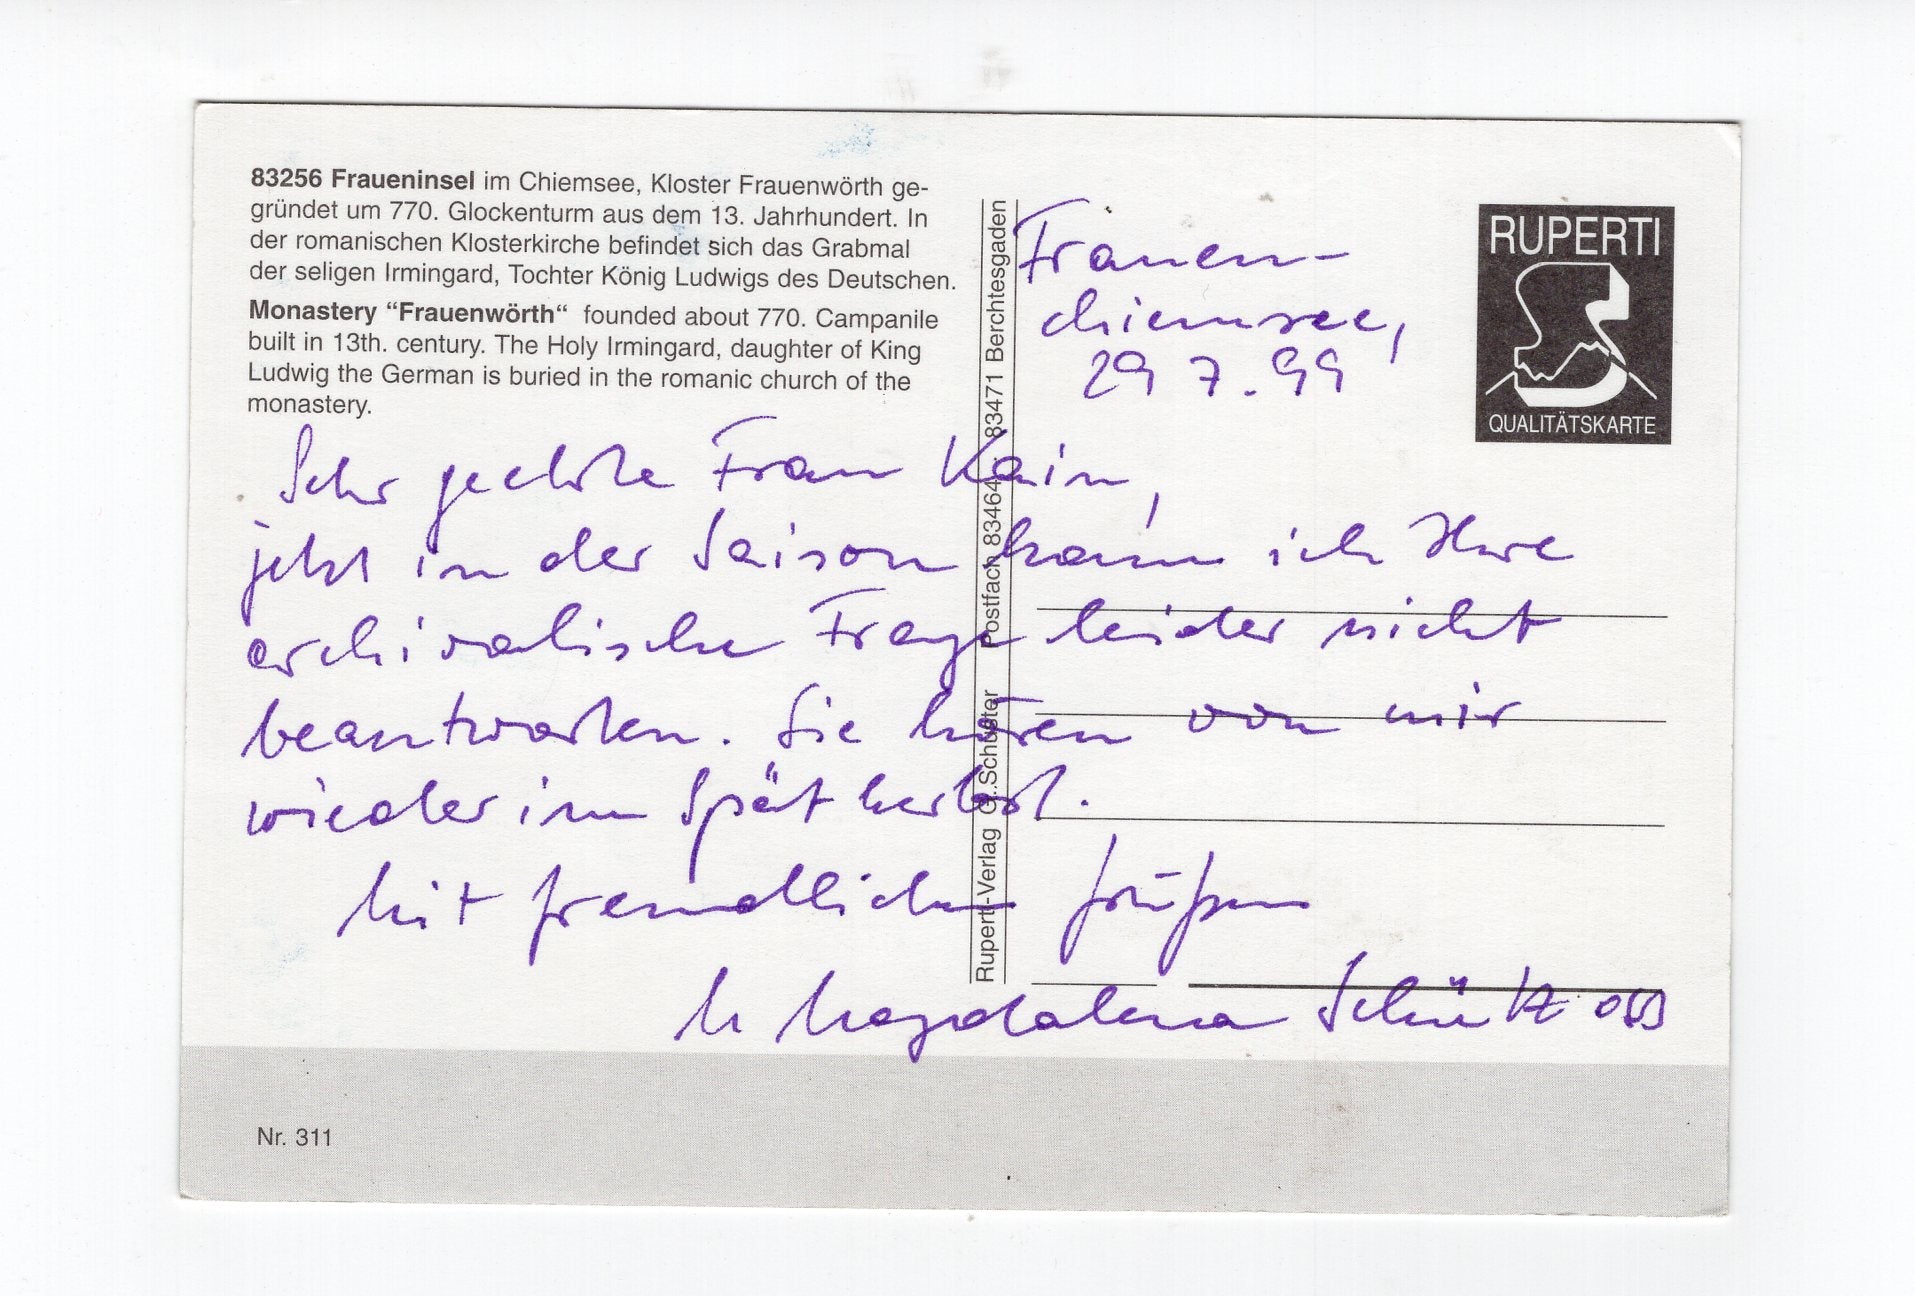 83256 Fraueninsel im Chiemsee, Kloster Frauenwörth ge-
gründet um 770. Glockenturm aus dem 13. Jahrhundert. In
der romanischen Klosterkirche befindet sich das Grabmal
der seligen Irmingard, Tochter König Ludwigs des Deutschen.
Monastery “Frauenwörth“ founded about 770. Campanile
built in 13th. century. The Holy Irmingard, daughter of King
Ludwig the German is buried in the romanic church of the
monastery.
Ruperti-Verlag G. Schuster Postfach 83464 83471 Berchtesgaden
RUPERTI
QUALITÄTSKARTE
Frauen-
chiemsee,
29 7.99
Sehr geehrte Frau Kain,
jetzt in der Saison kann ich Ihre
archivalische Frage leider nicht
beantworten. Sie hören von mir
wieder im Spätherbst.
Mit freundlichen Grüßen
M Magdalena Schütz OSB
Nr. 311